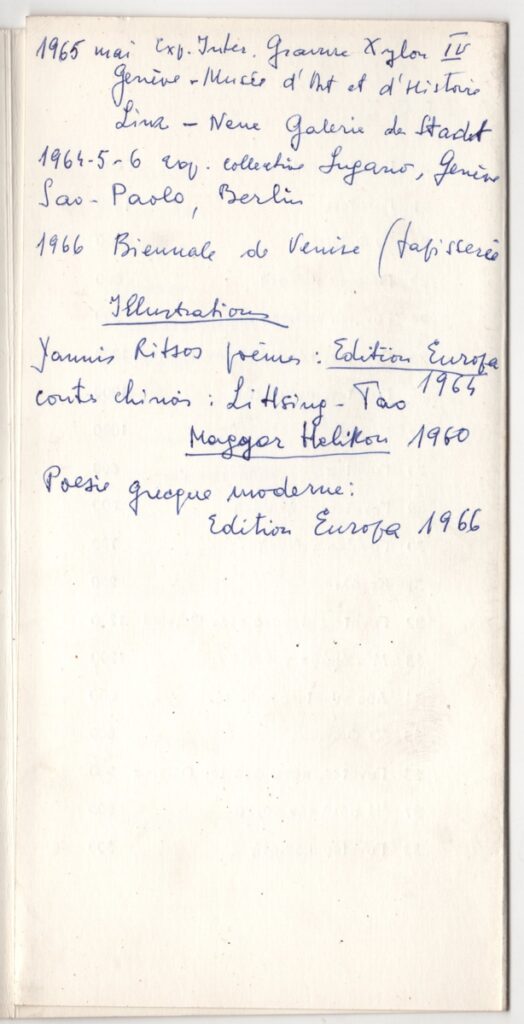 1965 mai Exp. Inter. Gravure Xylon IV
Genève - Musée d'Art et d'Histoire
Linz - Neue Galerie der Stadt
1964-5-6 exp. collective Lugano, Genève
Sao-Paolo, Berlin
1966 Biennale de Venise (tapisserie
Illustrations
Yannis Ritsos poèmes: Edition Europa
1964
contes chinois: Li Hsing-Tao
Maggar Helikon 1960
Poesie grecque moderne:
Edition Europa 1966